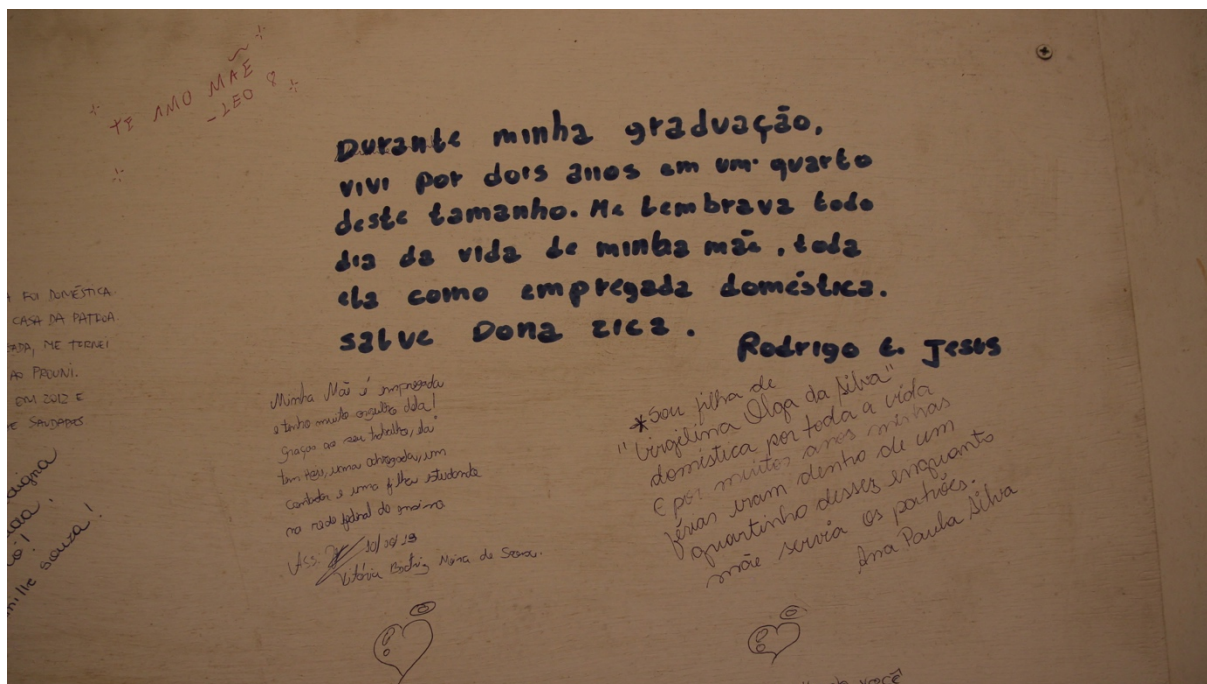 TE AMO MÃE
-LEO
Durante minha graduação,
vivi por dois anos em um quarto
deste tamanho. Me lembrava todo
dia da vida de minha mãe, toda
ela como empregada doméstica.
Salve Dona Zica.
Rodrigo E. Jesus
FOI DOMÉSTICA
CASA DA PATROA.
ME TORNEI
AO PROUNI.
EM 2012 E
SAUDADES
souza!
Minha Mãe é empregada
e tenho muito orgulho dela!
graças ao seu trabalho, ela
tem hoje, uma advogada, um
contador e uma filha estudante
na rede federal de ensino
Ass:
Vitória Beatriz de Souza.
*Sou filha de
"Virgilina Olga da Silva"
doméstica por toda a vida
e por muitos anos minhas
férias eram dentro de um
quartinho dessez enquanto
mãe servia os patrões.
Ana Paula Silva
você